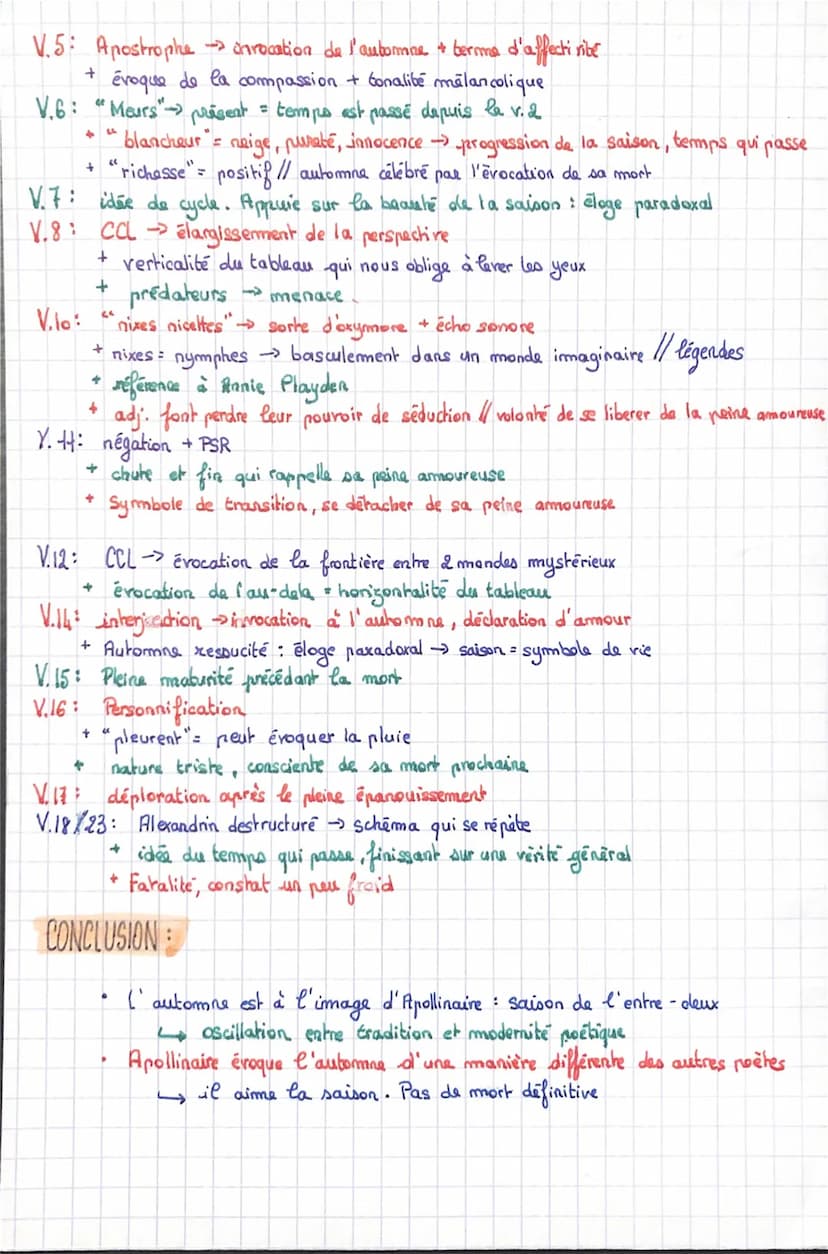 V.5 : Apostrophe → invocation de l'automne + terme d'affectivité
+ évoque de la compassion + tonalité mélancolique
V.6 : "Meurs" → présent = temps est passé depuis la v.2
+ "blancheur" = neige, pureté, innocence → progression de la saison, temps qui passe
+ "richesse" = positif // automne célébré par l'évocation de sa mort
V.7 : idée de cycle. Appuie sur la beauté de la saison : éloge paradoxal
V.8 : CCL → élargissement de la perspective
+ verticalité du tableau qui nous oblige à lever les yeux
+ prédateurs → menace.
V.10 : "nixes nicettes" → sorte d'oxymore + écho sonore
+ nixes = nymphes → basculement dans un monde immaginaire // légendes
+ référence à Annie Playden
+ adj. font perdre leur pouvoir de séduction // volonté de se liberer de la peine amoureuse
V.11 : négation + PSR
+ chute et fin qui rappelle sa peine amoureuse
+ Symbole de transition, se détacher de sa peine amoureuse
V.12 : CCL → évocation de la frontière entre 2 mondes mystérieux
+ évocation de l'au-delà = horizontalité du tableau
V.14 : interjection → invocation à l'automne, déclaration d'amour
+ Automne ressucité : éloge paradoxal → saison = symbole de vie
V.15 : Pleine maturité précédant la mort
V.16 : Personnification
+ "pleurent" = peut évoquer la pluie
+ nature triste, consciente de sa mort prochaine
V.17 : déploration après le pleine épanouissement
V.18/23 : Alexandrin destructuré → schéma qui se répète
+ idée du temps qui passe, finissant sur une vérité général
+ Fatalité, constat un peu froid
CONCLUSION :
• L'automne est à l'image d'Apollinaire : saison de l'entre-deux
↳ oscillation entre tradition et modernité poétique
• Apollinaire évoque l'automne d'une manière différente des autres poètes
↳ il aime la saison. Pas de mort définitive